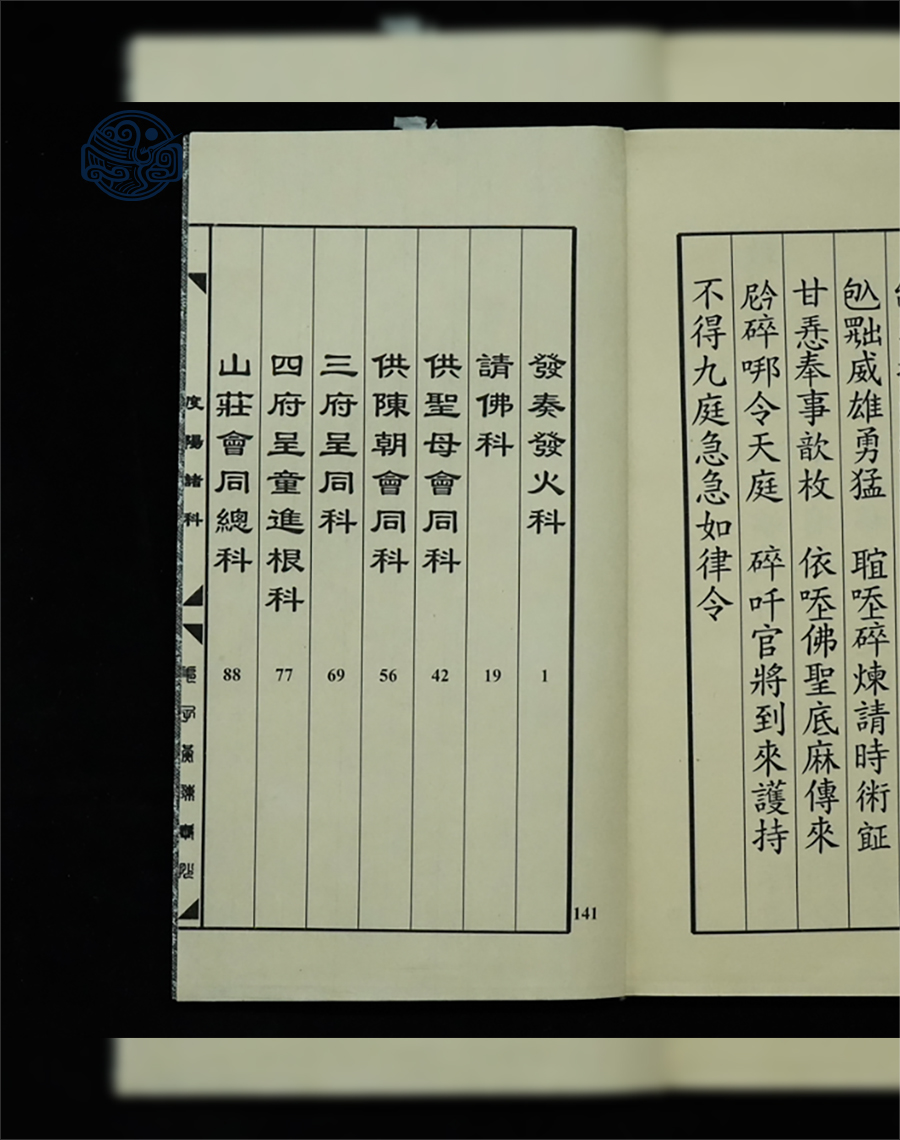 威雄勇猛 碎煉請時術
甘奉事歆枚 依佛聖底麻傳來
碎哪令天庭 碎吀官將到來護持
不得九庭急急如律令
發奏發火科 1
請佛科 19
供聖母會同科 42
供陳朝會同科 56
三府呈同科 69
四府呈童進根科 77
山莊會同總科 88
141
度陽諸科